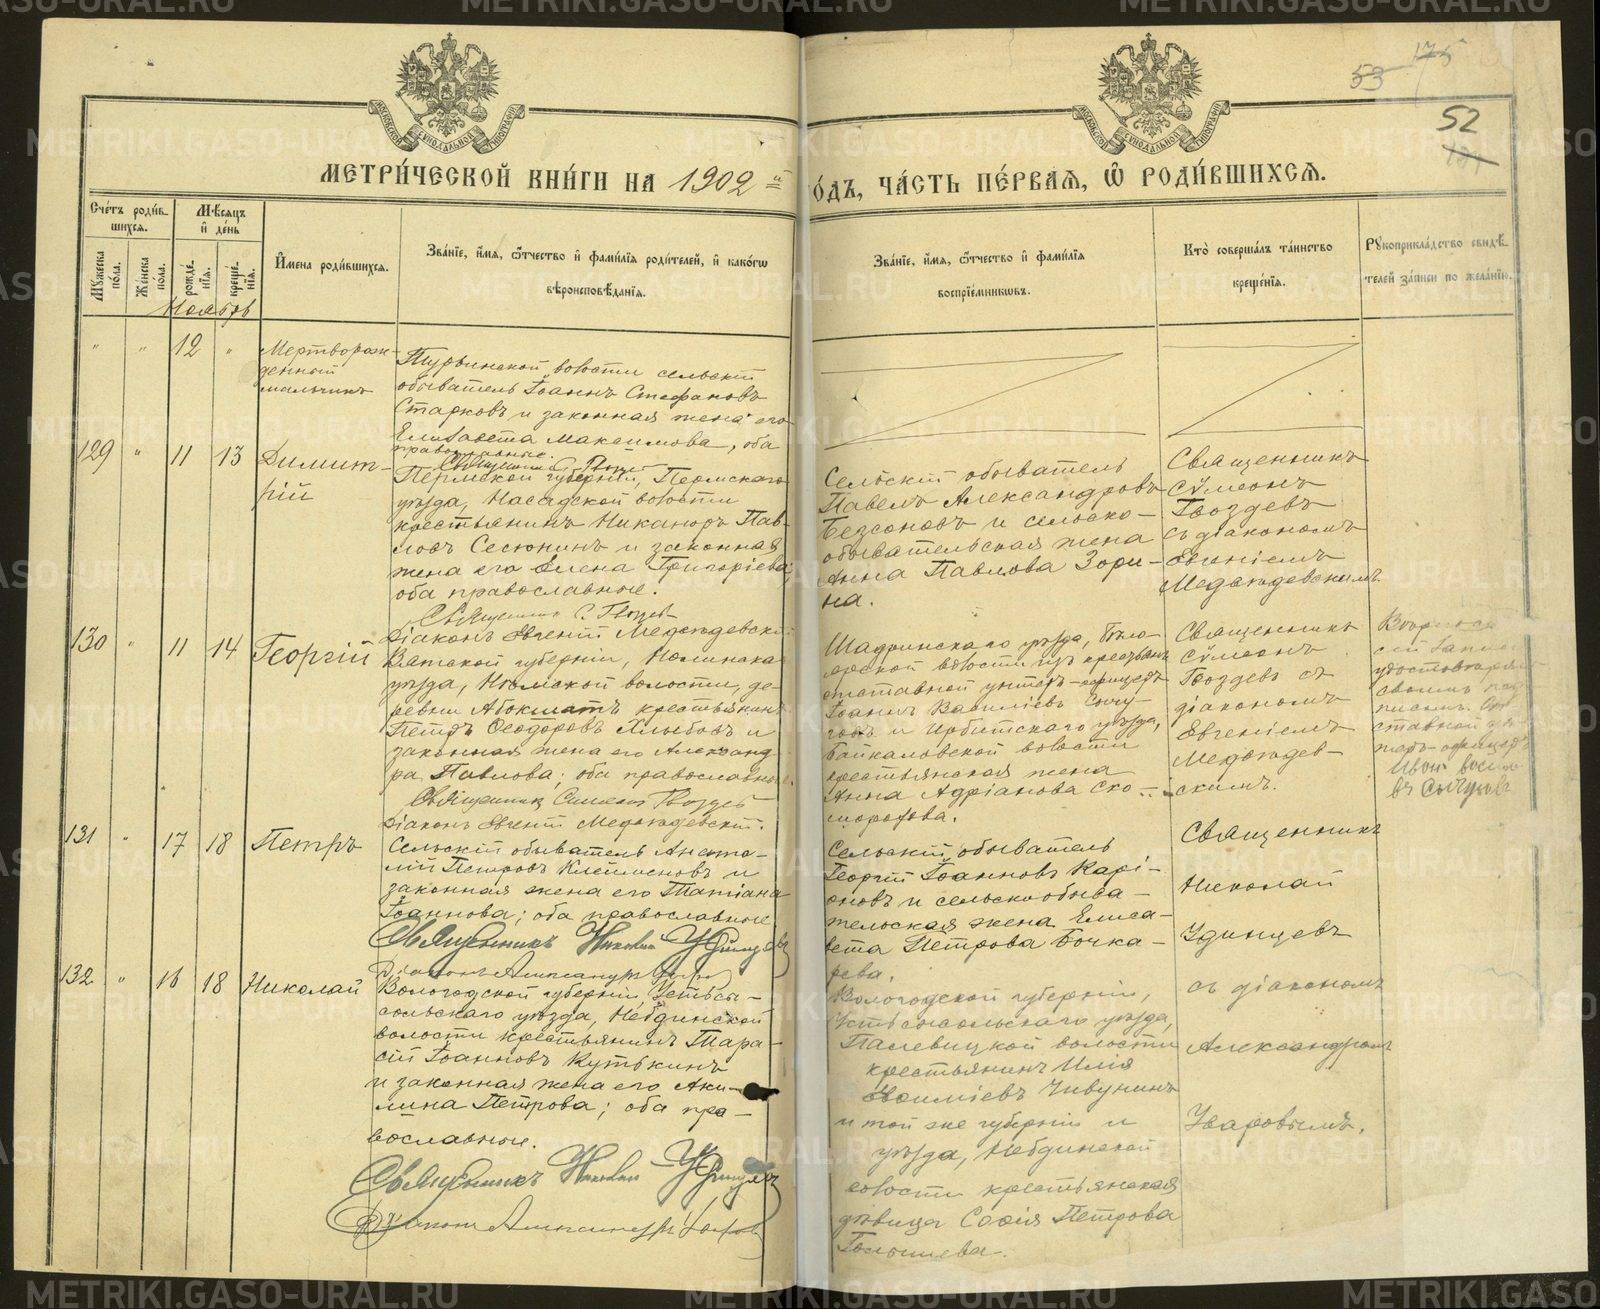 METRIKI.GASO-URAL.RU
53 175
52
МОСКОВСКОЙ СѴНОДАЛЬНОЙ ТИПОГРАФІИ
МЕТРИ́ЧЕСКОЙ КНИ́ГИ НА 1902 й
О́ДЪ, ЧА́СТЬ ПЕ́РВАЯ, Ѽ РОДИ́ВШИХСЯ.
Сче́тъ роди́вшихся.
Мꙋ́жеска по́ла.
Же́нска по́ла.
Мѣ́сяцъ и҆ де́нь
рожде́нія.
креще́нія.
И҆мена роди́вшихся.
Зва́ніе, и҆́мя, ѻ҆́тчество и҆ фами́лія роди́телей, и҆ како́гѡ вѣроисповѣ́данія.
Зва́ніе, и҆́мя, ѻ҆́тчество и҆ фами́лія воспріе́мниковъ.
Кто̀ соверша́лъ та́инство креще́нія.
Рꙋкоприкла́дство свидѣ́телей за́писи по жела́нію.
Ноябрь
" " 12 "
Мертворож-
денный
мальчикъ
Турьинской волости сельскій
обыватель Іоаннъ Стефановъ
Старковъ и законная жена его
Елизавета Максимова, оба
православные.
129 " 11 13
Димит-
рій
Пермской губерніи, Пермскаго
уѣзда, Насадской волости
крестьянинъ Никаноръ Пав-
ловъ Сесюнинъ и законная
жена его Елена Григоріева;
оба православные.
Сельскій обыватель
Павелъ Александровъ
Безсоновъ и сельско-
обывательская жена
Анна Павлова Зори-
на.
Священникъ
Сѵмеонъ
Гвоздевъ
съ діакономъ
Евгеніемъ
Медвѣдевскимъ.
130 " 11 14 Георгій
Священникъ С. Гвоздев
Діаконъ Евгеній Медвѣдевскій
Вятской губерніи, Нолинска
уѣзда, волости, де-
ревни крестьянинъ
Петръ Ѳеодоровъ Хлыбовъ и
законная жена его Александ-
ра Павлова; оба православные.
Священник Симеон Гвоздев
Діаконъ Евгеній Медвѣдевскій.
Шадринскаго уѣзда, Бѣло-
ярской волости изъ крестьянъ
отставной унтеръ-офицеръ
Іоаннъ Василіевъ Сычу-
говъ и Ирбитскаго уѣзда,
Байкаловской волости
крестьянская жена
Анна Адріанова Ско-
морохова.
Священникъ
Сѵмеонъ
Гвоздевъ съ
діакономъ
Евгеніемъ
Медвѣдев-
скимъ.
удостовѣряю
своимъ под
писомъ. От
ставной ун
теръ-офицеръ
Иван Василь
въ Сычуговъ
131 " 17 18 Петръ
Сельскій обыватель Анато-
лій Петровъ Клейменовъ и
законная жена его Татіана
Іоаннова; оба православные
Священникъ Николай Удинцевъ
Діаконъ Александръ Уваров
Сельскій обыватель
Георгій Іоанновъ Карі-
оновъ и сельскообыва-
тельская жена Елиса-
вета Петрова Бочка-
рева.
Священникъ
Николай
Удинцевъ
съ діакономъ
Александромъ
Уваровымъ.
132 " 16 18 Николай
Вологодской губерніи, Устьсы-
сольскаго уѣзда, Небдинской
волости крестьянинъ Тара-
сій Іоанновъ Кутькинъ
и законная жена его Аки-
лина Петрова; оба пра-
вославные.
Священникъ Николай Удинцев
Діаконъ Александръ Уваров
Вологодской губерніи,
Устьсысольскаго уѣзда,
Палевицкой волости
крестьянинъ Илія
Василіевъ Чивунинъ
и той же губерніи и
уѣзда, Небдинской
волости крестьянская
дѣвица Софія Петрова
Голышева.